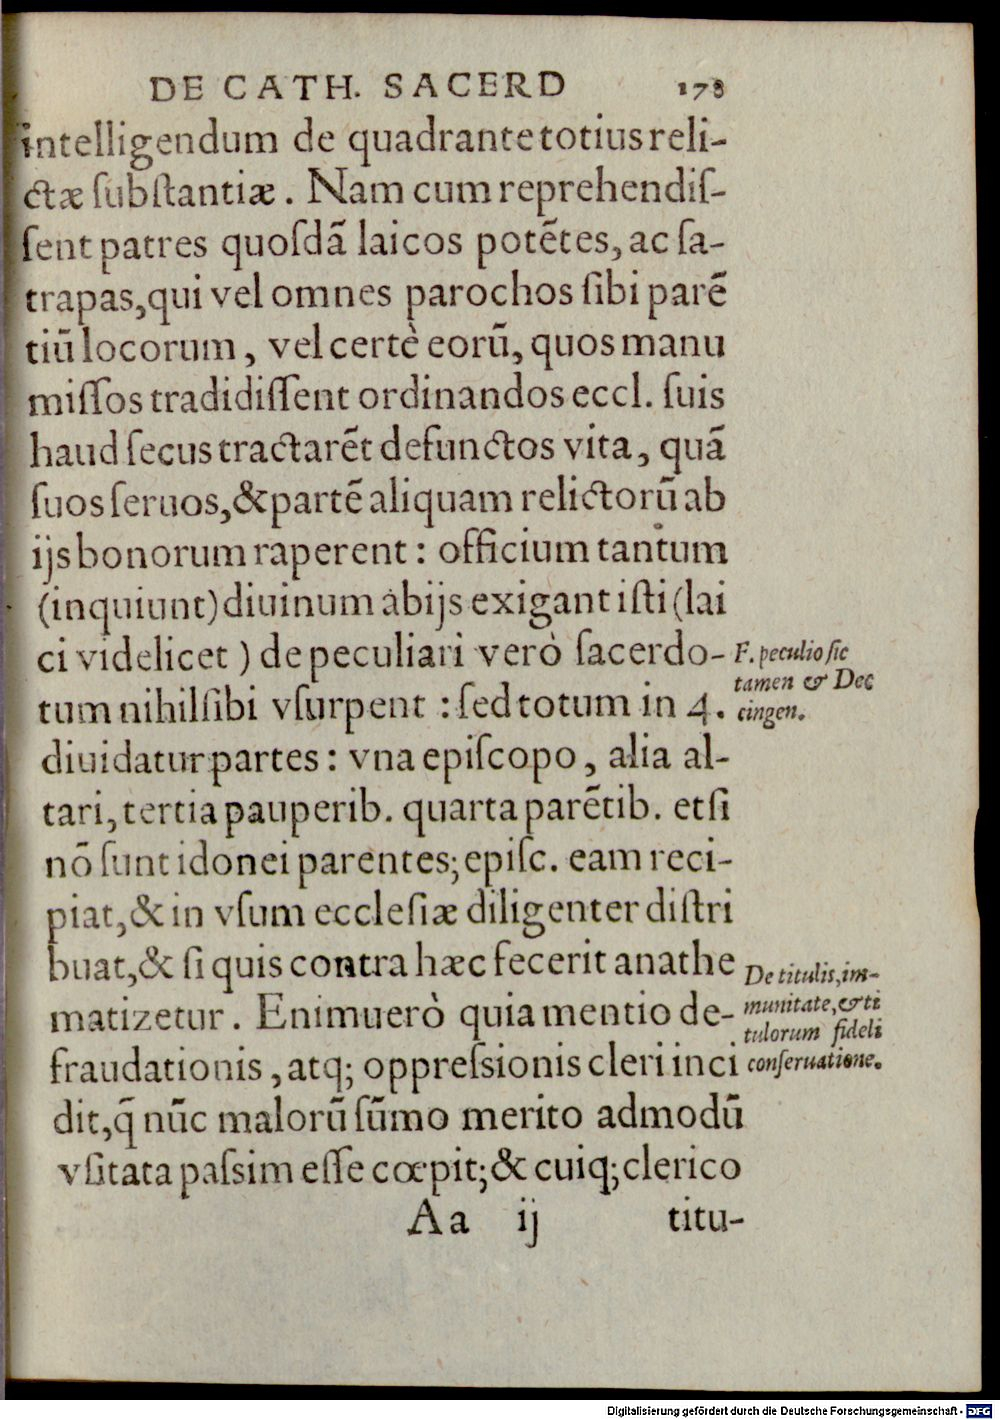 DE CATH. SACERD 178
intelligendum de quadrante totius reli-
ctæ ſubſtantiæ. Nam cum reprehendiſ-
ſent patres quoſdã laicos potẽtes, ac ſa-
trapas, qui vel omnes parochos ſibi parẽ
tiũ locorum, vel certè eorũ, quos manu
miſſos tradidiſſent ordinandos eccl. ſuis
haud ſecus tractarẽt defunctos vita, quã
ſuos ſeruos, & partẽ aliquam relictorũ ab
ijs bonorum raperent: officium tantum
(inquiunt) diuinum ab ijs exigant iſti (lai
ci videlicet) de peculiari verò ſacerdo-
tum nihil ſibi vſurpent: ſed totum in 4.
diuidatur partes: vna epiſcopo, alia al-
tari, tertia pauperib. quarta parẽtib. et ſi
nõ ſunt idonei parentes; epiſc. eam reci-
piat, & in vſum eccleſiæ diligenter diſtri
buat, & ſi quis contra hæc fecerit anathe
matizetur. Enimuerò quia mentio de-
fraudationis, atq; oppreſsionis cleri inci
dit, q̃ nũc malorũ ſũmo merito admodũ
vſitata paſsim eſſe cœpit; & cuiq; clerico
Aa ij titu-
F. peculio ſic
tamen & Dec
cingen.
De titulis, im-
munitate, & ti
tulorum fideli
conſeruatione.
Digitalisierung gefördert durch die Deutsche Forschungsgemeinschaft - DFG